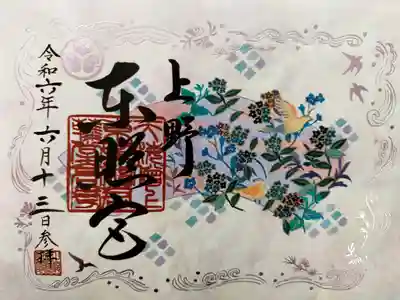 上野
東照宮
令和六年 六月十三日参拝